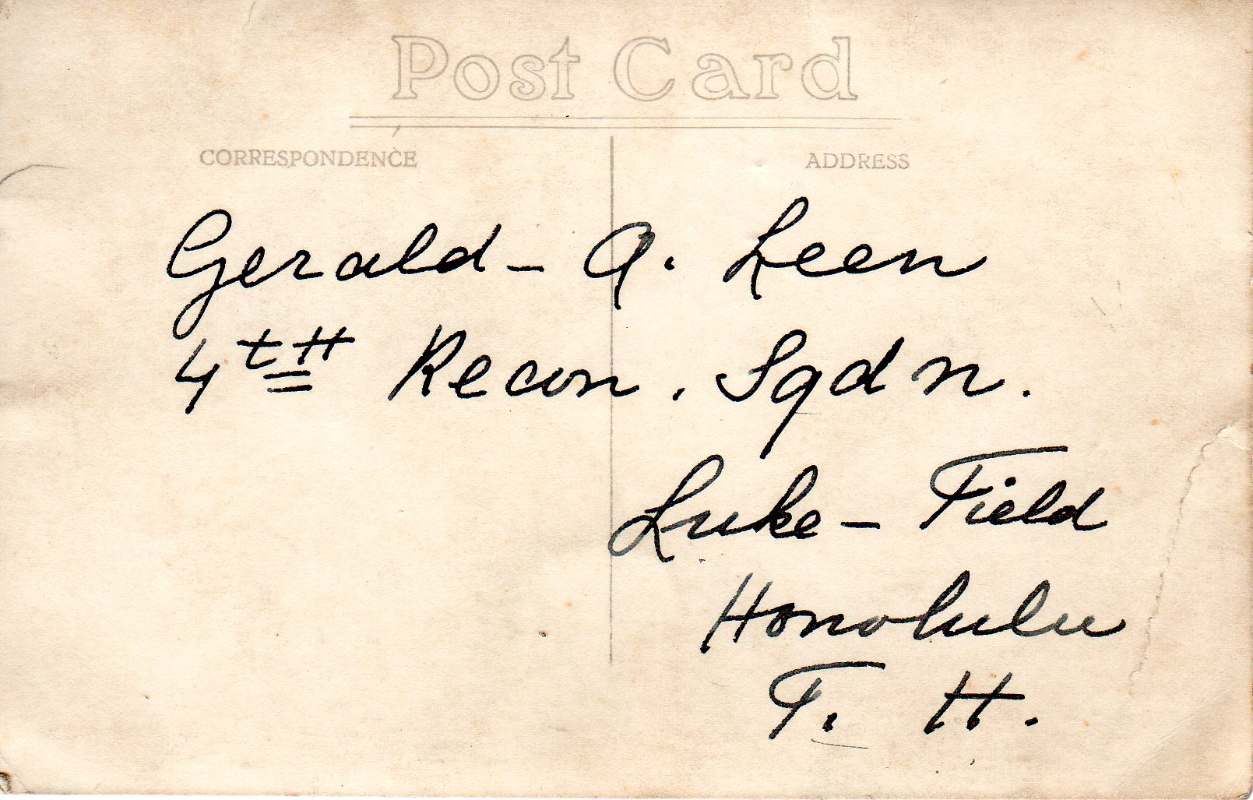 Post Card
CORRESPONDENCE
ADDRESS
Gerald - A. Leen
4tH Recon. Sqdn.
Luke - Field
Honolulu
T. H.